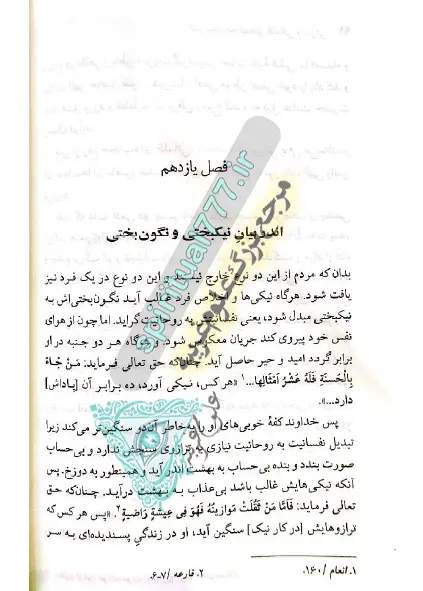 فصل یازدهم
اندر بیان نیکبختی و نگون‌بختی
بدان که مردم از این دو نوع خارج نیستند و این دو نوع در یک فرد نیز
یافت شود. هرگاه نیکی‌ها و اخلاص فرد غالب آید نگون‌بختی‌اش به
نیکبختی مبدل شود، یعنی نفسانیتش به روحانیت گراید. اما چون از هوای
نفس خود پیروی کند جریان معکوس شود. و هرگاه هر دو جنبه در او
برابر گردد امید و خیر حاصل آید. چنان‌که حق تعالی فرماید: مَنْ جَاءَ
بِالْحَسَنَةِ فَلَهُ عَشْرُ أَمْثَالِهَا...۱ «هر کس، نیکی آورد، ده برابر آن [پاداش]
دارد...».
پس خداوند کفهٔ خوبی‌های او را به‌خاطر آن دو سنگین‌تر می‌کند زیرا
تبدیل نفسانیت به روحانیت نیازی به ترازوی سنجش ندارد و بی‌حساب
صورت بندد و بنده بی‌حساب به بهشت اندر آید و همینطور به دوزخ. پس
آنکه نیکی‌هایش غالب باشد بی‌عذاب به بهشت درآید. چنان‌که حق
تعالی فرماید: فَأَمَّا مَنْ ثَقُلَتْ مَوَازِينُهُ فَهُوَ فِي عِيشَةٍ رَاضِيَةٍ۲. «پس هر کس که
ترازوهایش [در کار نیک] سنگین آید، او در زندگیِ پسندیده‌ای به سر
۱. انعام /۱۶۰. ۲. قارعه /۷-۶.
spiritual777.ir
مرجع بزرگ علوم غریبه
علوم غریبه